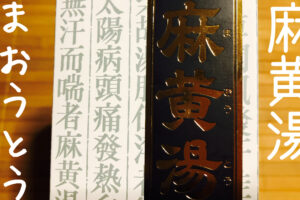 麻黄湯
麻黄湯
太陽病頭痛發熱
無汗而喘者麻黄
まおうとう